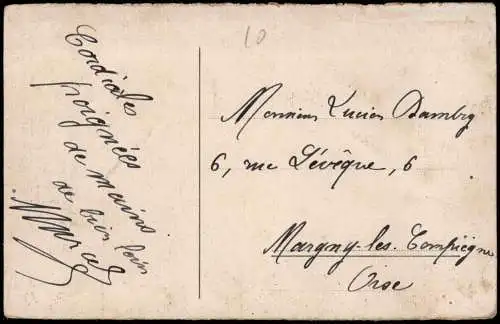 10
Cordiales
poignées
de mains
de bien loin
Marcel
Monsieur Lucien Dambry
6, rue Lévêque, 6
Margny-les-Compiègne
Oise